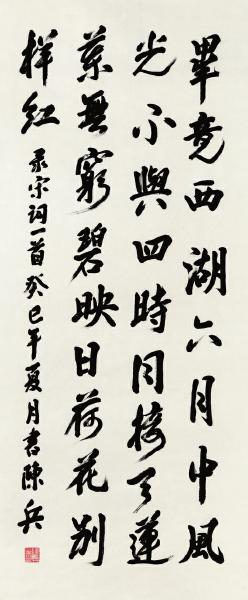 畢竟西湖六月中風
光不與四時同接天蓮
葉無窮碧映日荷花別
样红
录宋词一首癸巳年夏月書陳兵